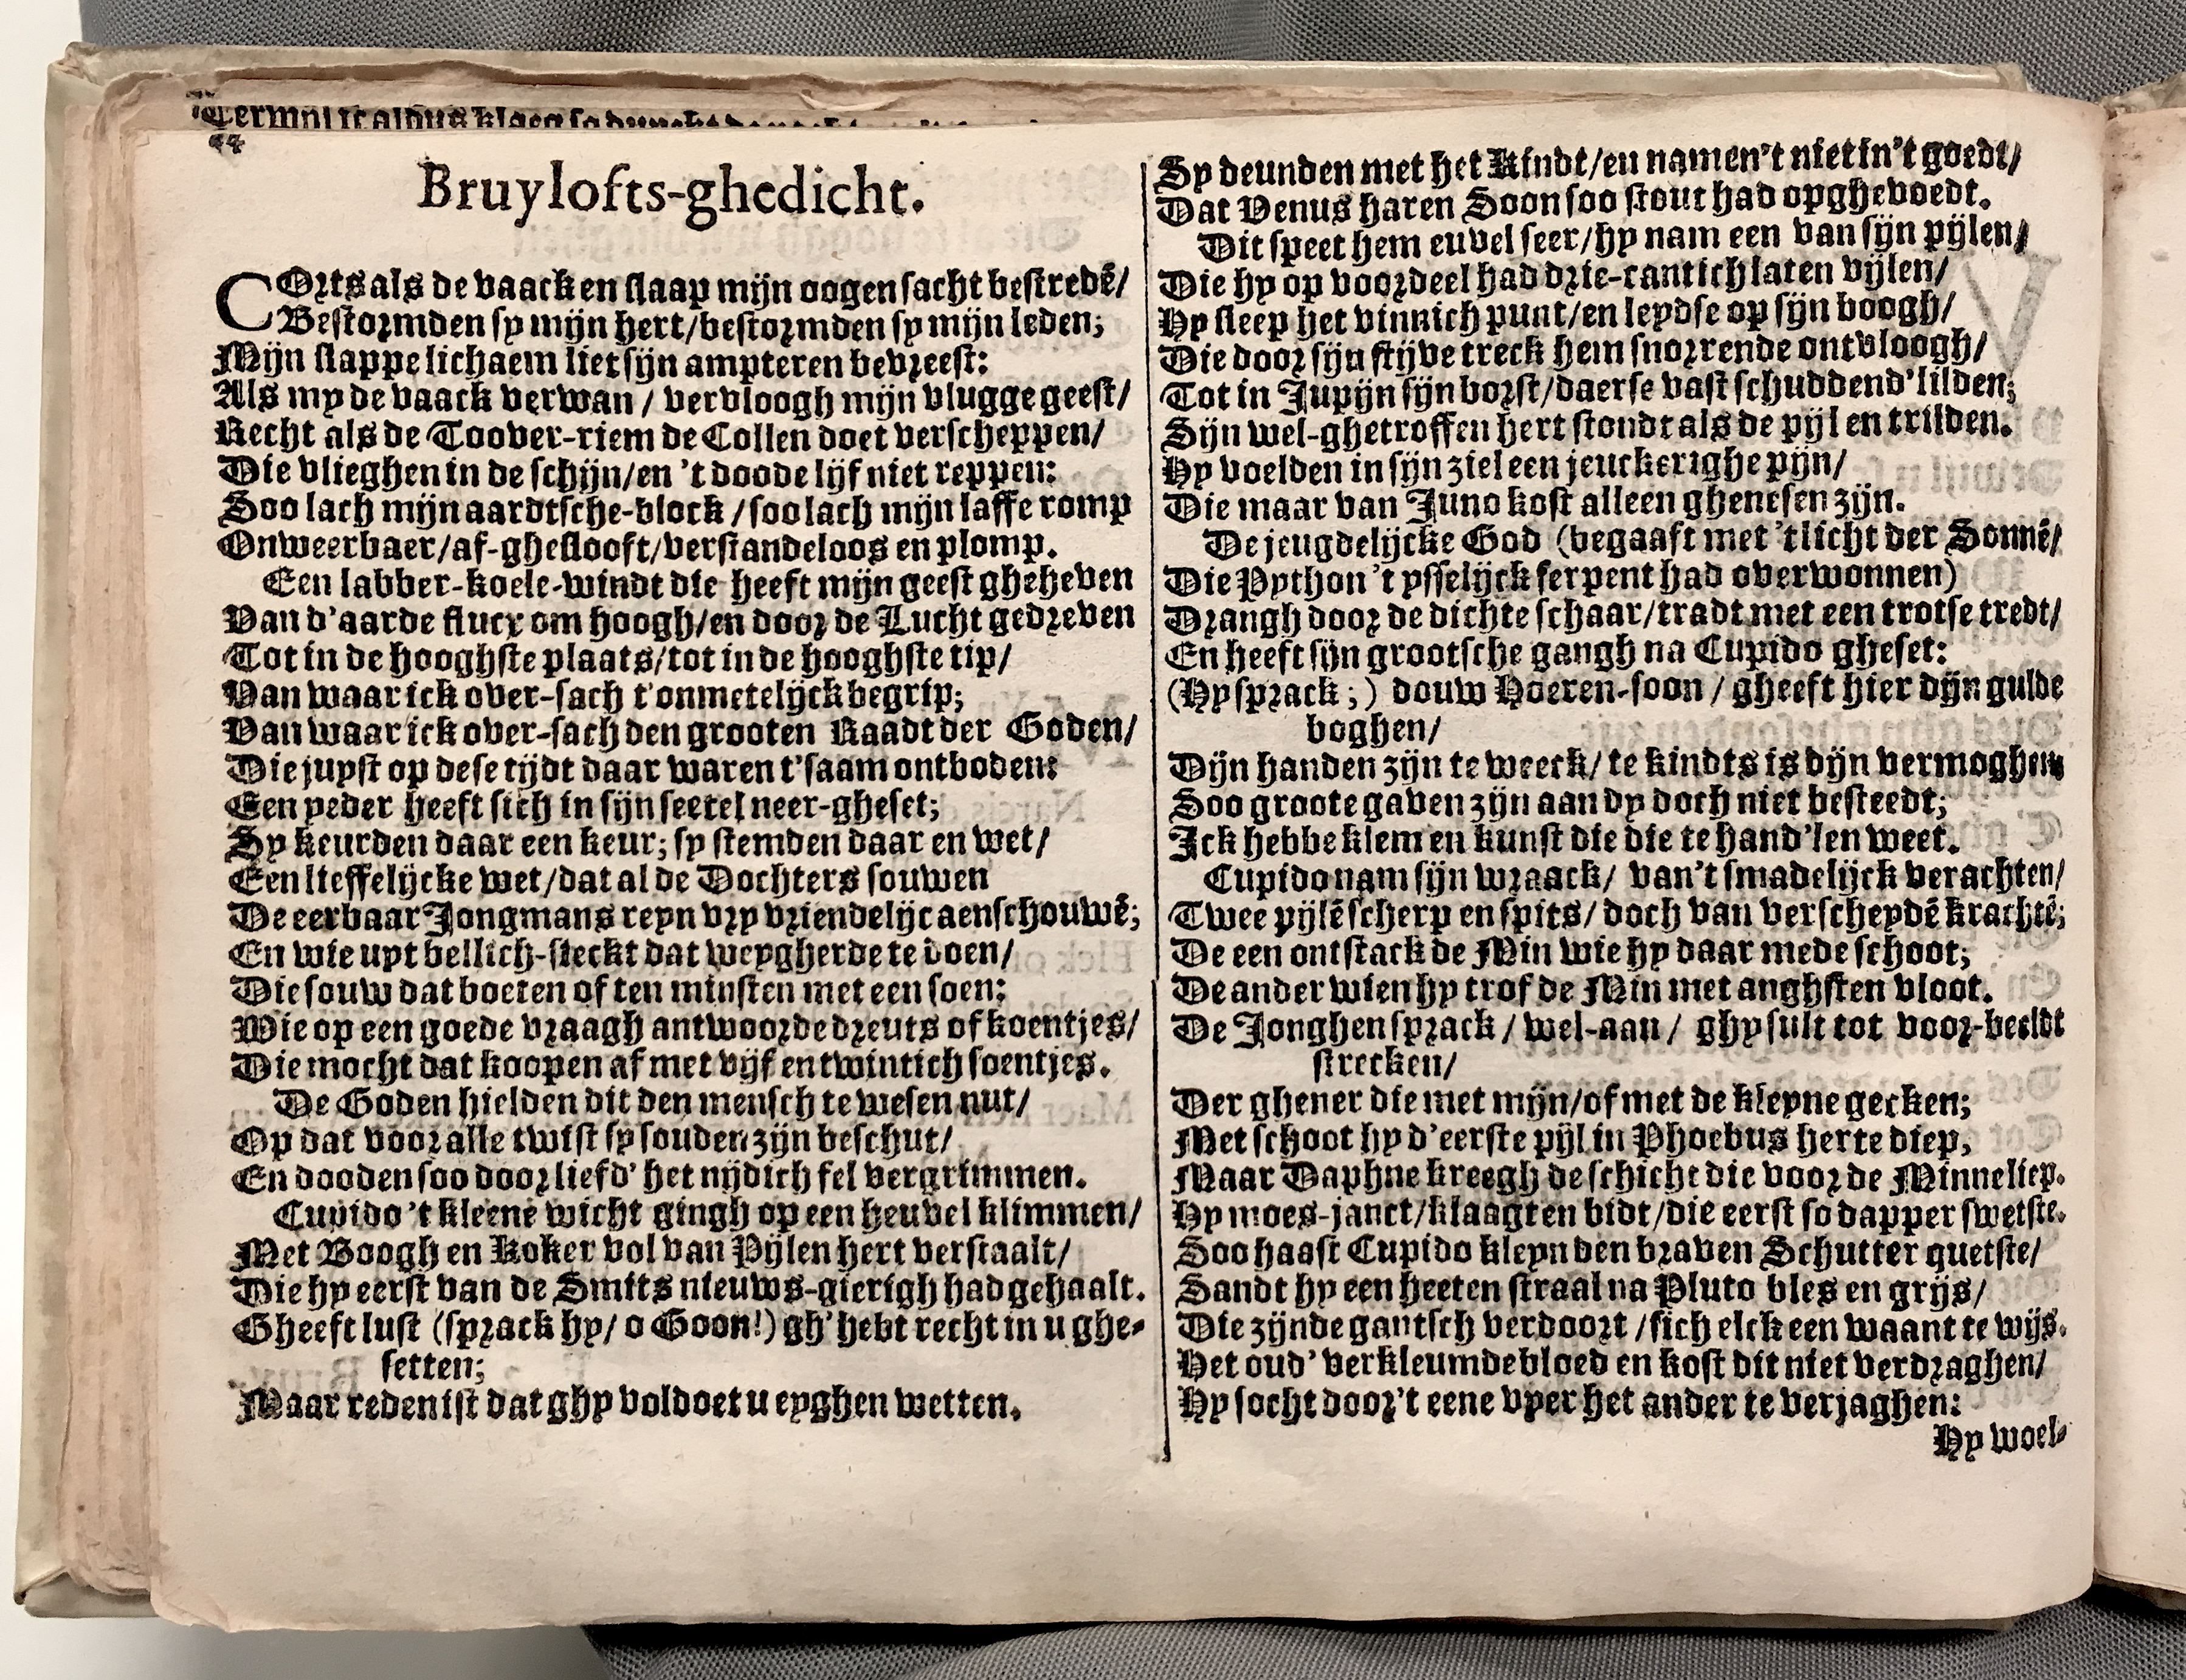 44
Bruylofts-ghedicht.
COrts als de vaack en slaap mijn oogen sacht bestredē/
Bestormden sy mijn hert/bestormden sy mijn leden;
Mijn slappe lichaem liet sijn ampteren bevreest:
Als my de vaack verwan / vervloogh mijn vlugge geest/
Recht als de Toover-riem de Collen doet verscheppen/
Die vlieghen in de schijn/en 't doode lijf niet reppen:
Soo lach mijn aardtsche-block / soo lach mijn laffe romp
Onweerbaer/af-gheslooft/verstandeloos en plomp.
Een labber-koele-windt die heeft mijn geest gheheven
Van d'aarde flucx om hoogh/en door de Lucht gedreven
Tot in de hooghste plaats/tot in de hooghste tip/
Van waar ick over-sach t'onmetelijck begrip;
Van waar ick over-sach den grooten Raadt der Goden/
Die juyst op dese tijdt daar waren t'saam ontboden:
Een yeder heeft sich in sijn seetel neer-gheset;
Sy keurden daar een keur; sy stemden daar en wet/
Een lieffelijcke wet/dat al de Dochters souwen
De eerbaar Jongmans reyn vry vriendelijc aenschouwē;
En wie uyt bellich-steckt dat weygherde te doen/
Die souw dat boeten of ten minsten met een soen:
Wie op een goede vraagh antwoorde dreuts of koentjes/
Die mocht dat koopen af met vijf en twintich soentjes.
De Goden hielden dit den mensch te wesen nut/
Op dat voor alle twist sy souden zijn beschut/
En dooden soo door liefd' het nijdich fel vergrimmen.
Cupido 't kleene wicht gingh op een heuvel klimmen/
Met Boogh en Koker vol van Pijlen hert verstaalt/
Die hy eerst van de Smits nieuws-gierigh had gehaalt.
Gheeft lust (sprack hy/ o Goon!) gh' hebt recht in u ghe-
setten;
Maar reden ist dat ghy voldoet u eyghen wetten.
Sy deunden met het Kindt/en namen't niet in't goedt/
Dat Venus haren Soon soo stout had opghevoedt.
Dit speet hem euvel seer/hy nam een van sijn pijlen/
Die hy op voordeel had drie-cantich laten vijlen/
Hy sleep het vinnich punt/en leydse op sijn boogh/
Die door sijn stijve treck hem snorrende ontvloogh/
Tot in Jupijn sijn borst/daerse vast schuddend' lilden;
Sijn wel-ghetroffen hert stondt als de pijl en trilden.
Hy voelden in sijn ziel een jeuckerighe pijn/
Die maar van Juno kost alleen ghenesen zijn.
De jeugdelijcke God (begaaft met 'tlicht der Sonnē/
Die Python 't ysselijck serpent had overwonnen)
Drangh door de dichte schaar/tradt met een trotse tredt/
En heeft sijn grootsche gangh na Cupido gheset:
(Hy sprack;) douw Hoeren-soon / gheeft hier dijn gulde
boghen/
Dijn handen zijn te weeck/ te kindts is dijn vermoghen
Soo groote gaven zijn aan dy doch niet besteedt;
Ick hebbe klem en kunst die die te hand'len weet.
Cupido nam sijn wraack/ van't smadelijck verachten/
Twee pijlē scherp en spits/ doch van verscheydē krachtē;
De een ontstack de Min wie hy daar mede schoot;
De ander wien hy trof de Min met anghsten vloot.
De Jonghen sprack / wel-aan / ghy sult tot voor-beeldt
strecken/
Der ghener die met mijn/of met de kleyne gecken;
Met schoot hy d'eerste pijl in Phoebus herte diep,
Maar Daphne kreegh de schicht die voor de Minne liep.
Hy moes-janct/klaagt en bidt/die eerst so dapper swetste.
Soo haast Cupido kleyn den braven Schutter quetste/
Sandt hy een heeten straal na Pluto bles en grijs/
Die zijnde gantsch verdoort /sich elck een waant te wijs.
Het oud' verkleumde bloed en kost dit niet verdraghen/
Hy socht door't eene vyer het ander te verjaghen:
Hy woel-